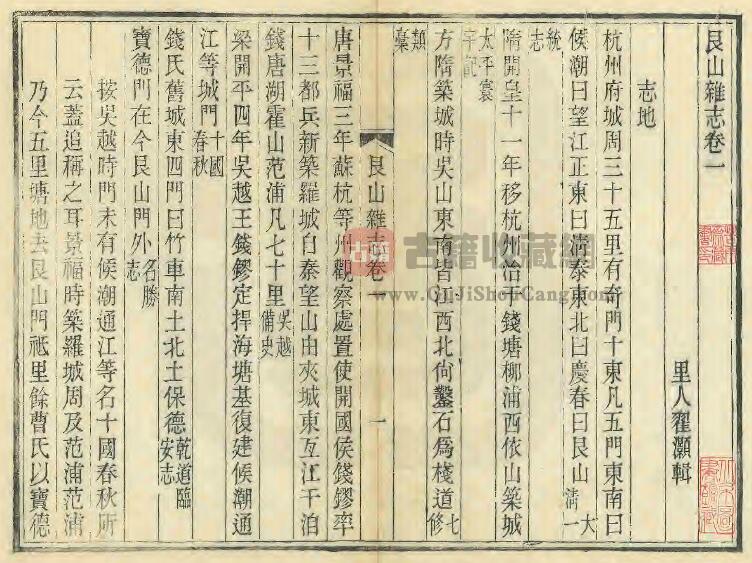 艮山雜志卷一
里人翟灝輯
志地
杭州府城周三十五里有奇門十東凡五門東南曰
候潮曰望江正東曰清泰東北曰慶春曰艮山大清一
統志
隋開皇十一年移杭州治于錢塘柳浦西依山築城
太平寰宇記
方隋築城時吳山東南皆江西北尙鑿石爲棧道七修
類藁
艮山雜志卷一
一
唐景福三年蘇杭等州觀察處置使開國侯錢鏐率
十三都兵新築羅城自秦望山由夾城東亙江干泊
錢唐湖霍山范浦凡七十里吳越備史
梁開平四年吳越王錢鏐定捍海塘基復建候潮通
江等城門十國春秋
錢氏舊城東四門曰竹車南土北土保德乾道臨安志
寶德門在今艮山門外名勝志
按吳越時門未有候潮通江等名十國春秋所
云蓋追稱之耳景福時築羅城周及范浦范浦
乃今五里塘地去艮山門祗里餘曹氏以寶德
古籍
古籍收藏網
www.GuJiShouCang.com